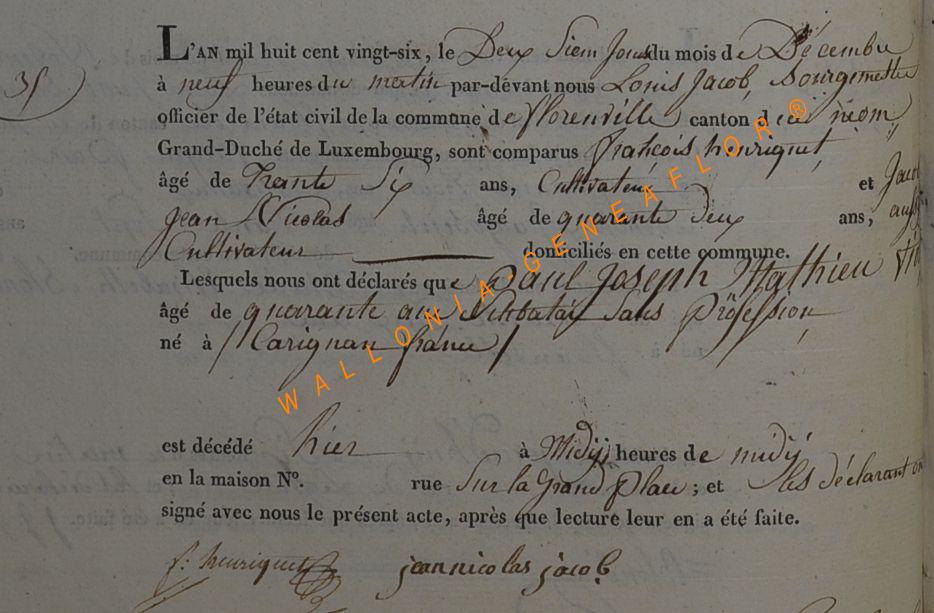 35
L'AN mil huit cent vingt-six, le Deux Siem Jour du mois de Décembre
à neuf heures du matin par-devant nous Louis Jacob, Bourgmettre
officier de l'état civil de la commune de florenville canton de
Grand-Duché de Luxembourg, sont comparus françois henriquet
âgé de Trante Six ans, Cultivateur et Jacob
Jean Nicolas âgé de quarante deux ans, aussi
Cultivateur domiciliés en cette commune.
Lesquels nous ont déclarés que paul Joseph Mathieu
âgé de quarante ans Celibatair Sans Profession
né à /Carignan france/
est décédé hier à Midÿ heures de midÿ
en la maison N°. rue Sur la Grand place ; et les déclarant on
signé avec nous le présent acte, après que lecture leur en a été faite.
f: henriquet jeannicolas jacob
WALLONIA-GENEAFLOR®